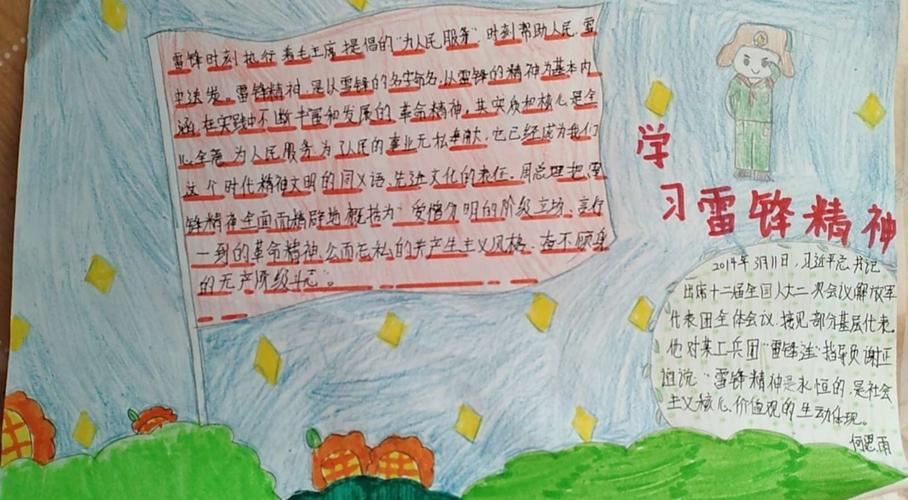 雷锋时刻执行着毛主席提倡的"为人民服务"时刻帮助人民，雷
出法发。雷锋精神，是以雷锋的名字命名，以雷锋的精神为基本内
涵，在实践中不断丰富和发展的革命精神，其实质和核心是全
心全意为人民服务，为了人民的事业无私奉献。它已经成为我们
这个时代精神文明的同义语、先进文化的表征。周总理把雷
锋精神全面而精辟地概括为"爱憎分明的阶级立场、言行
一到的革命精神、公而忘私的共产主义风格、奋不顾身
的无产阶级斗志"。
学
习雷锋精神
2014年3月11日，习近平总书记
出席十二届全国人大二次会议解放军
代表团全体会议，接见部分基层代表。
他对某工兵团"雷锋连"指导员谢正
谊说，"雷锋精神是永恒的，是社会
主义核心价值观的生动体现。
何思雨